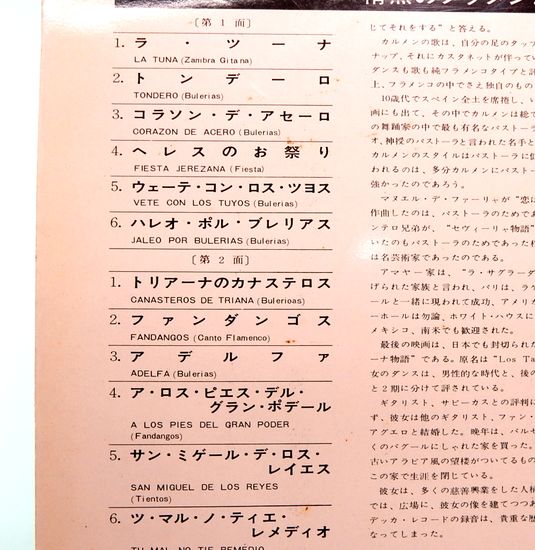 〔第 1 面〕
1. ラ・ツーナ
LA TUNA (Zambra Gitana)
2. トンデーロ
TONDERO (Bulerias)
3. コラソン・デ・アセーロ
CORAZON DE ACERO (Bulerias)
4. ヘレスのお祭り
FIESTA JEREZANA (Fiesta)
5. ウェーテ・コン・ロス・ツヨス
VETE CON LOS TUYOS (Bulerias)
6. ハレオ・ポル・ブレリアス
JALEO POR BULERIAS (Bulerias)
〔第 2 面〕
1. トリアーナのカナステロス
CANASTEROS DE TRIANA (Bulerioas)
2. ファンダンゴス
FANDANGOS (Canto Flamenco)
3. アデルファ
ADELFA (Bulerias)
4. ア・ロス・ピエス・デル・
グラン・ポデール
A LOS PIES DEL GRAN PODER
(Fandangos)
5. サン・ミゲール・デ・ロス・
レイエス
SAN MIGUEL DE LOS REYES
(Tientos)
6. ツ・マル・ノ・ティエ・
レメディオ
TU MAL NO TIE REMEDIO
じてそれをする"と答える。
カルメンの歌は、自分の足のタップ
ナップ、それにカスタネットが伴ってい
ダンスも歌も純フラメンコタイプと
上、フラメンコの中でさえ独自のもの
10歳代でスペイン全土を席捲し、い
画にも出て、その中でカルメンは総て
の舞踊家の中で最も有名なパストーラ
オ、神授のパストーラと言われた名手と
カルメンのスタイルはパストーラに
われるのは、多分カルメンにパストー
強かったのであろう。
マヌエル・デ・ファーリャが"恋
作曲したのは、パストーラのためであ
ンテロ兄弟が、"セヴィーリャ物語"
いたのもパストーラのためであった
は名芸術家であったのである。
アマヤ一家は、"ラ・サグラーダ
げられた家族と言われ、パリは、ラケ
ールと一緒に現われて成功、アメリカ
ーホールは勿論、ホワイト・ハウスに
メキシコ、南米でも歓迎された。
最後の映画は、日本でも封切られた
ーナ物語"である。原名は"Los Ta
女のダンスは、男性的な時代と、後の
と2期に分けて評されている。
ギタリスト、サビーカスとの評判に
ず、彼女は他のギタリスト、ファン・
アグエロと結婚した。晩年は、バルセ
くのバグールにしゃれた家を買った。
古いアラビア風の望楼がついてるもの
この家で生涯を閉じている。
彼女は、多くの慈善興業をした人柄
では、広場に、彼女の像を建てつつあ
デッカ・レコードの録音は、貴重な
なってしまった。